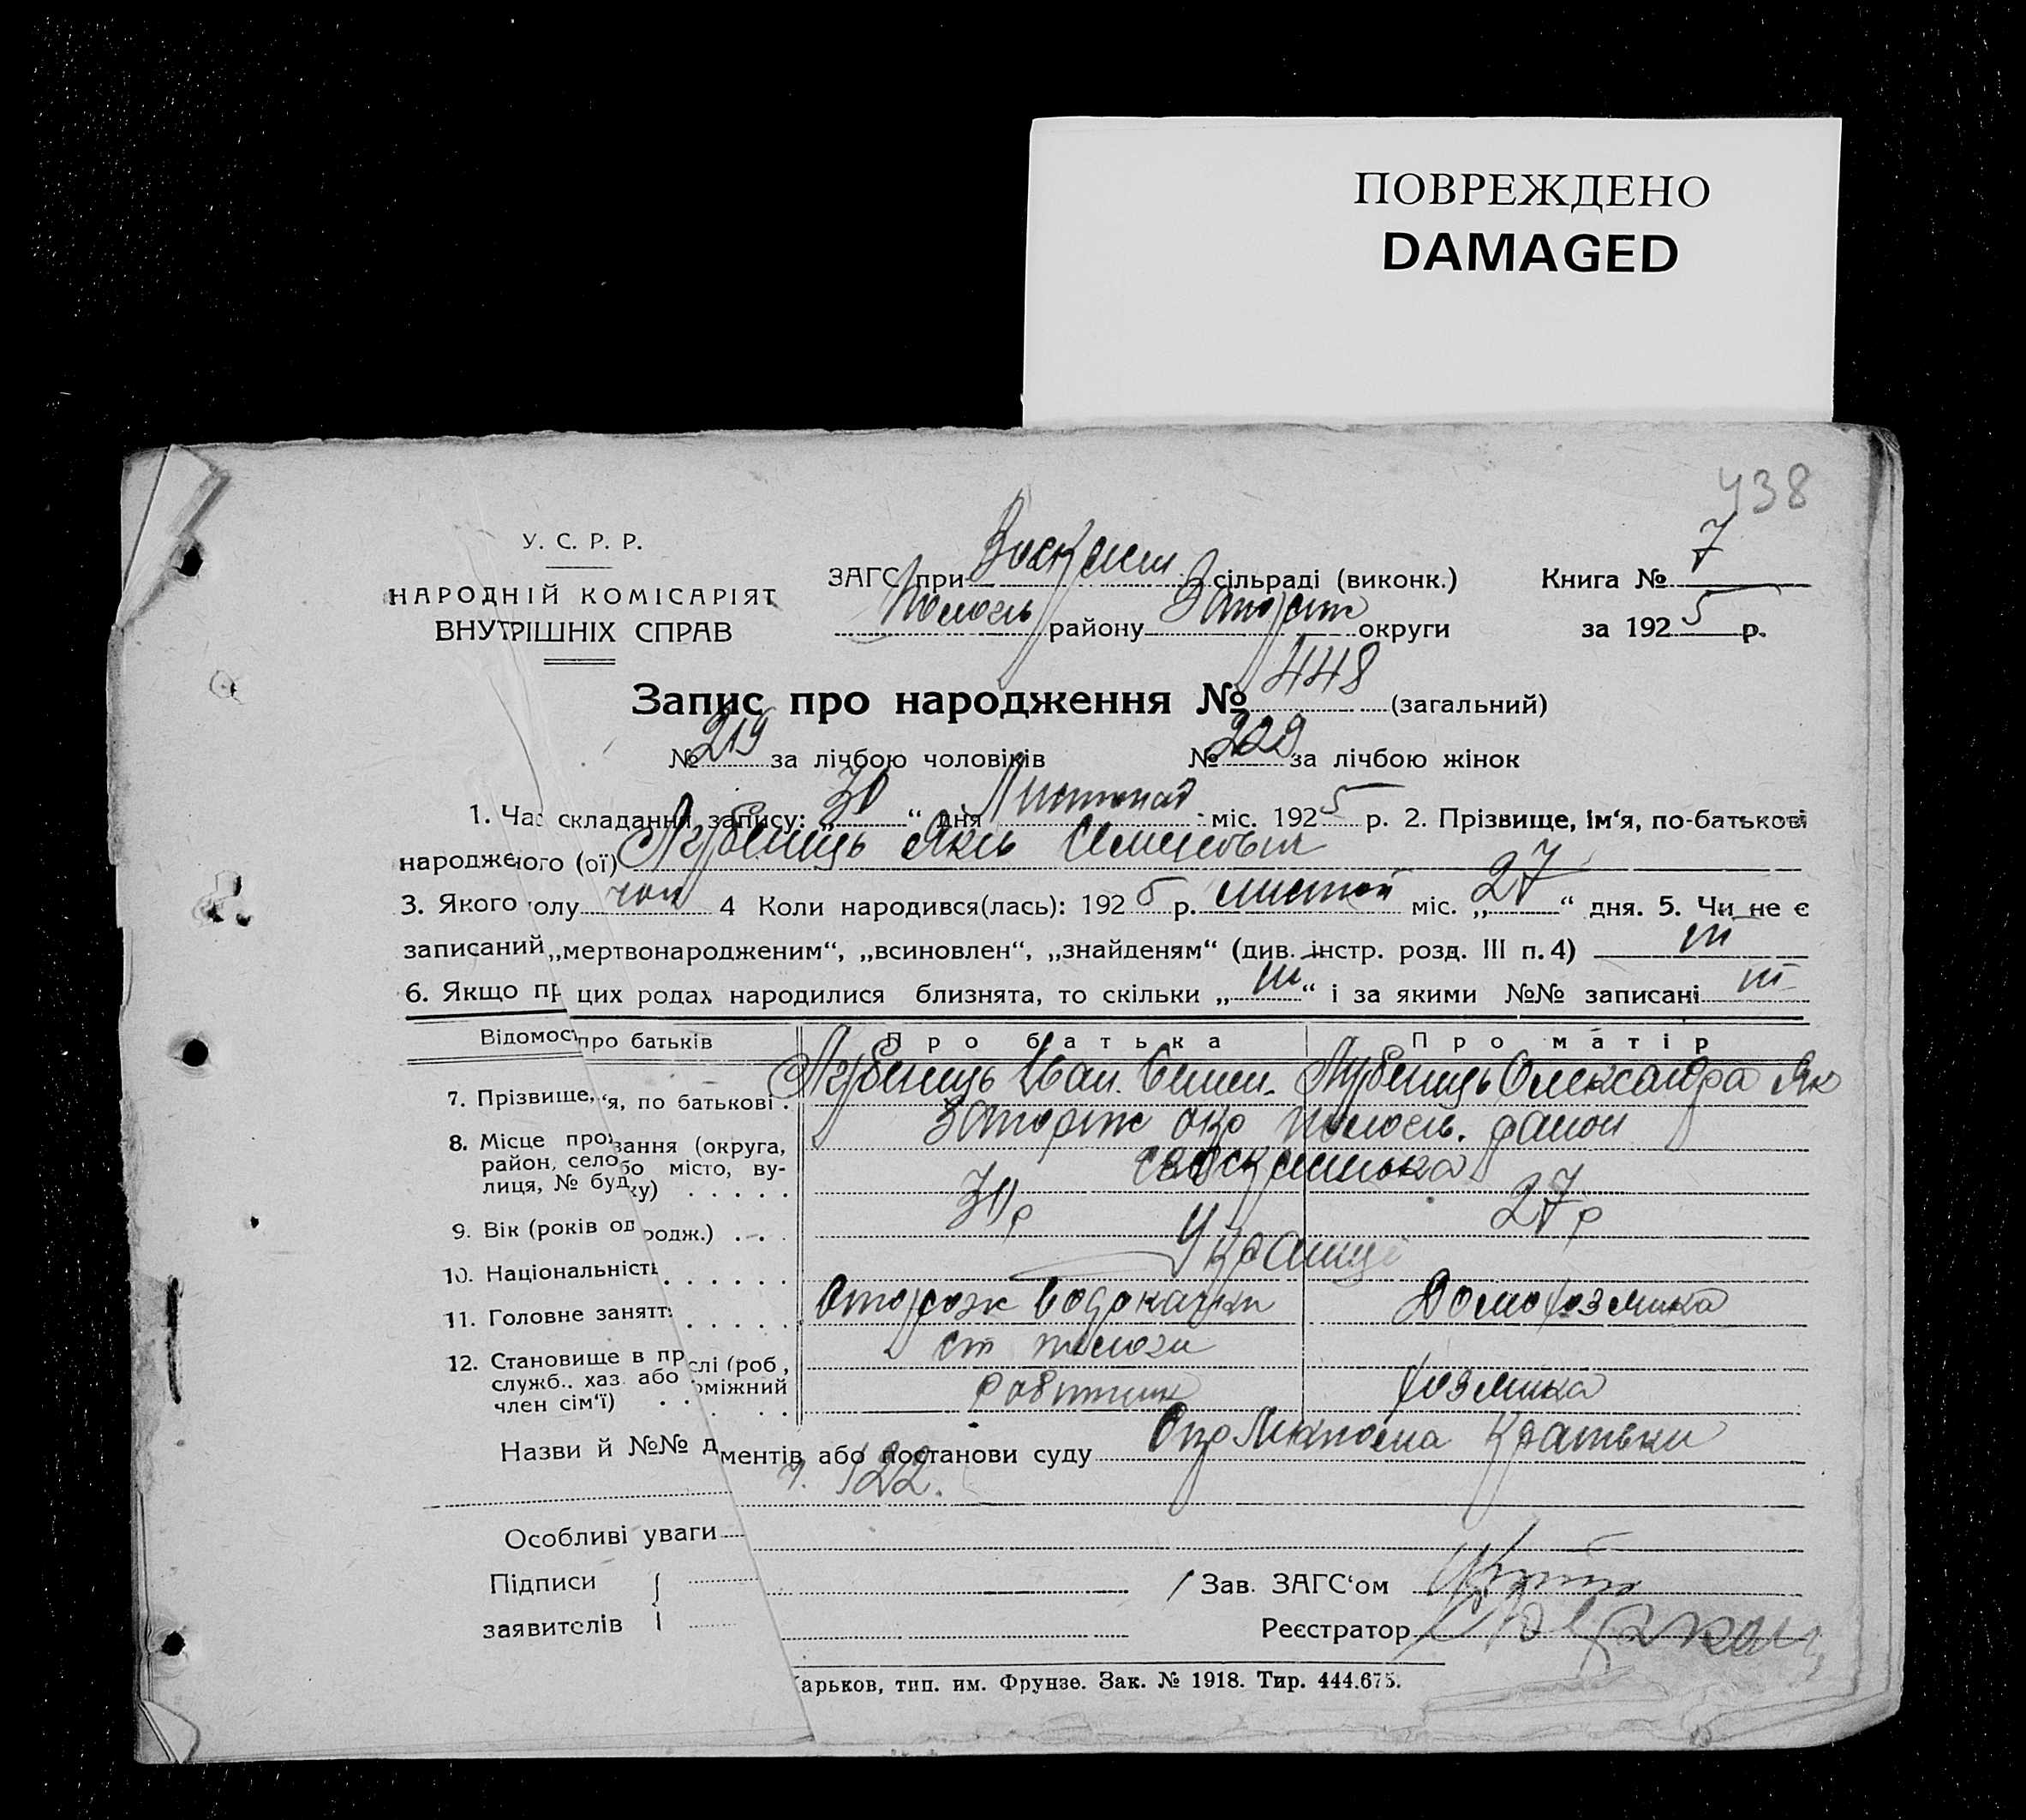 ПОВРЕЖДЕНО
DAMAGED
438
У. С. Р. Р.
НАРОДНІЙ КОМІСАРІЯТ
ВНУТРІШНІХ СПРАВ
ЗАГС при сільраді (виконк.)
району Запоріж округи
Книга № 7
за 1925 р.
Запис про народження № 448 (загальний)
№ 219 за лічбою чоловіків № 229 за лічбою жінок
1. Час складання запису: „30“ дня Листопад міс. 1925 р. 2. Прізвище, ім‘я, по-батькові
народженого (ої)
3. Якого полу чол 4 Коли народився(лась): 1925 р. листоп міс. „27“ дня. 5. Чи не є
записаний „мертвонародженим“, „всиновлен“, „знайденям“ (див. інстр. розд. III п. 4) ні
6. Якщо пр цих родах народилися близнята, то скільки „ні“ і за якими №№ записані ні
Відомост про батьків Про батька Про матір
7. Прізвище, ‘я, по батькові . Іван Семен. Олександра Як
8. Місце про вання (округа,
район, село бо місто, ву-
лиця, № буд ку) . . . . .
Запоріж окр район
9. Вік (років од родж.) . . . 30 р 27 р
10. Національність . . . . . . Українці
11. Головне занятт . . . . . Сторож водокачки Домохозяйка
12. Становище в пр слі (роб.,
служб., хаз. або оміжний
член сім‘ї) . . . . .
ст Пологи
робітник хозяйка
Назви й №№ д ментів або постанови суду
ч. 122.
Особливі уваги
Підписи
заявителів
Зав. ЗАГС‘ом
Реєстратор
арьков, тип. им. Фрунзе. Зак. № 1918. Тир. 444.675.